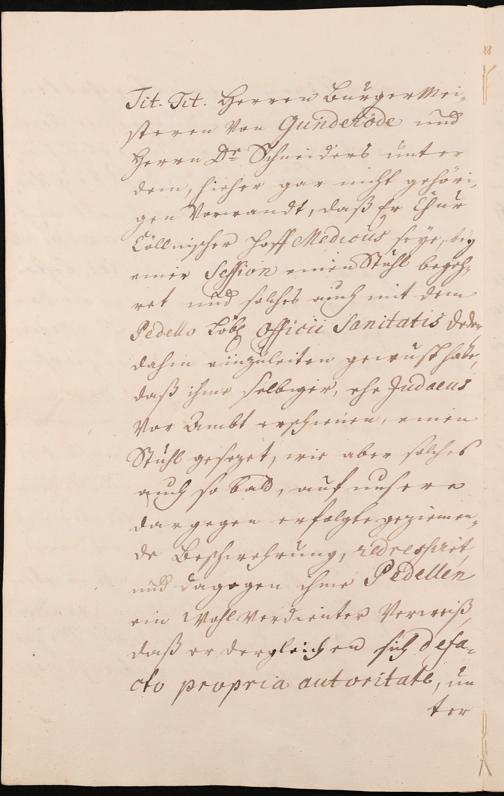 Tit. Tit. Herren Burgermei-
steren Von Gunderöde und
Herrn Dr. Schneiders unter
dem, hieher gar nicht gehöri-
gen Vorwandt, daß Er Chur
Cöllnischer Hoff Medicus seye, bey
einer Session einen Stuhl begeh-
ret und solches auch mit dem
Pedello Löbl. Officii Sanitatis
dahin einzuleiten gewust habe,
daß ihme selbiger, ehe Judaeus
Vor Ambt erschienen, einen
Stuhl gesezet, wie aber solches
auch so bald, auf unsere
dargegen erfolgte geziemen-
de Beschwehrung, redressiret,
und dagegen ihme Pedellen
ein Wohl Verdienter Verweiß,
daß er dergleichen sich defa-
cto propria autoritate, un
ter